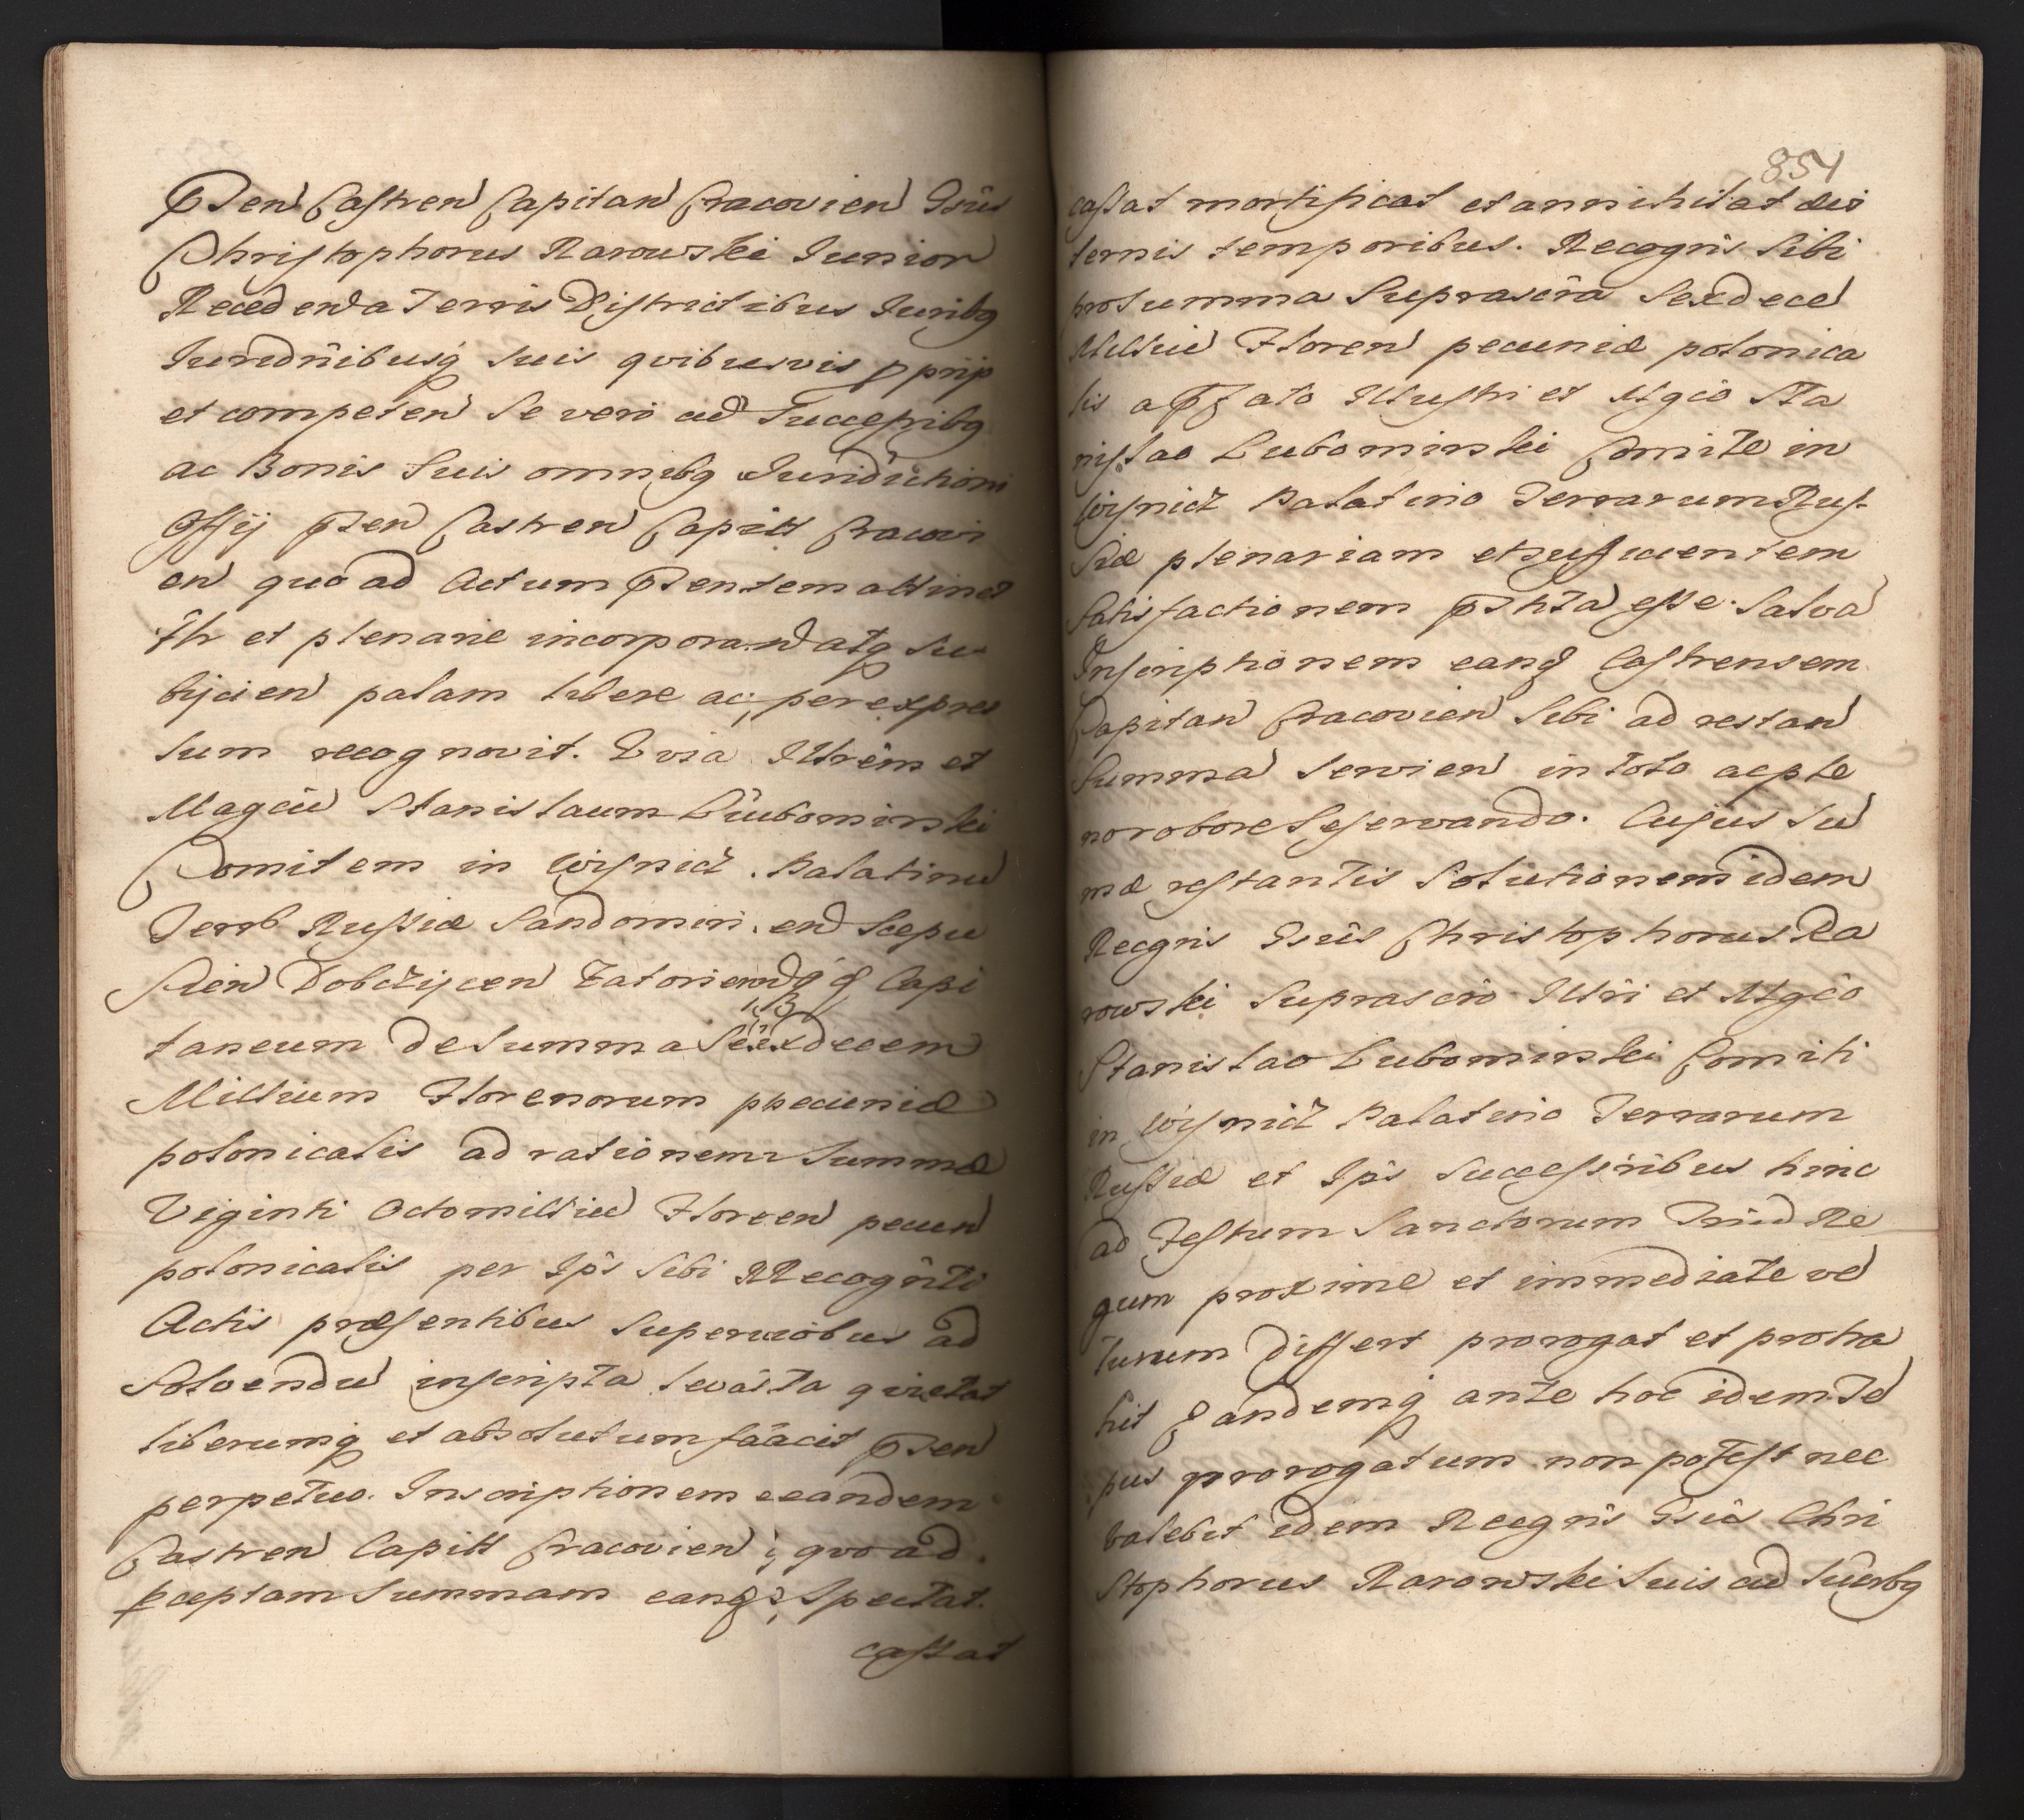 Psen Castren Capitan Cracovien Gnus
Christophorus Rarowski Junior
Recedenda Terris Districtibus Juribq
Juredñibusq suis qvibusvis pprijs
et competen se vero ac Successribq
ac Bonis Suis omnibq Juridictioni
Offij Psen Castren Capitt Cracovi
en quo ad Actum Psentem attinet
Ttr et plenarie incorporand atq su-
bijcien palam libere ac per expres
sum recognovit. Qvia Illrem et
Magcu Stanislaum Liubomirski
Comitem in Wisnicz. Palatinu
Terrb Russiæ Sandomiri. en Scepu
sien Dobczycen Zatorien qq Capi
taneum de Summa Sexdecem
Millium Florenorum ppecuniæ
polonicalis ad rationem Summæ
Viginti Octo milliu Floren pecun
polonicalis per Ips sibi RRecognti
Actis præsentibus Superiöbus ad
Solvendu inscripta levata qvietat
liberumq et absolutum fäacit Psen
perpetuo. Inscriptionem eeandem
Castren Capitt Cracovien; qvo ad
pceptam Summam eanq; Spectat.
cassat
854
cassat mortificat et annihilat ævi
ternis temporibus. Recogñs Sibi
pro Summa Suprascra Sexdece
Milliu Floren pecuniæ polonica
lis a Pfato Illustri et Mgco Sta
nislao Lubomirski Comite in
Wisnicz Palatino Terrarum Rus-
siæ plenariam et sufficientem
Satisfactionem Pstita esse. Salva
Inscriptionem eand Castrensem
Capitan Cracovien Sibi ad restan
Summa Servien in toto ac ple
no robore reservando. Cujus Su
mæ restantis Solutionem idem
Recgñs Gnus Christophorus Ra
rowski Suprascrõ Illri et Mgco
Stanislao Lubomirski Comiti
in Wisnicz Palatino Terrarum
Russiæ et Ips Successribus hinc
ad Festum Sanctorum Triu Re
gum proxime et immediate ve
turum Differt prorogat et protra
hit qandemq ante hoc idem Te
pus prorogatum non potest nec
valebit idem Recgñs Gnus Chri
stophorus Rarowski Suis ac Suübq